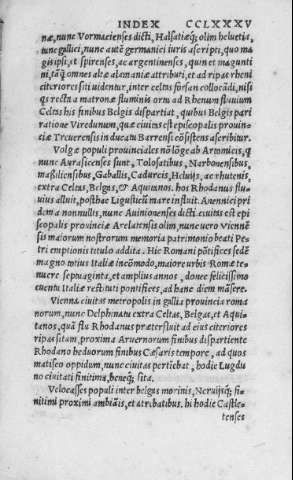 INDEX CCLXXXV
næ, nunc Vormacienses dicti, Halsatiæq; olim heluetia,
tunc gallici, nunc autē germanici iuris ascripti, quo ma
gis ipsi, et spirenses, ac argentinenses, quin et magunti
ni, tāq̃ omnes altæ alamaniæ attributi, et ad ripas rheni
citeriores siti uidentur, inter celtas forsan collocādi, nisi
qs recta a matronæ fluminis orū ad Rhenum fluuium
Celtas his finibus Belgis dispartiat, quibus Belgis pari
ratione Viredunum, quæ ciuitas est episcopalis prouin
ciæ Treuerensis in ducatu Barrense cōsistens ascribitur.
Volgæ populi prouinciales nō lōge ab Aruernicis, q
nunc Aurasicenses sunt, Tolosatibus, Narbonensibus,
massiliensibus, Gaballis, Cadurcis, Heluijs, ac rhutenis,
extra Celtas, Belgas, & Aquitanos. hos Rhodanus flu
uius alluit, posthac Ligusticū mare influit. Auennici pri
dem a nonnullis, nunc Auinionenses dicti. ciuitas est epi
scopalis prouinciæ Arelatensis olim, nunc uero Viennē
sis maiorum nostrorum memoria patrimonio beati Pe
tri emptionis titulo addita. Hic Romani pōtifices sedē
magno totius Italiæ incōmodo, maiore urbis Romæ te
nuere septuaginta, et amplius annos, donec felicissimo
euentu Italiæ restituti pontifices, ad hanc diem māsere.
Vienna ciuitas metropolis in gallia prouincia roma
norum, nunc Delphinatu extra Celtas, Belgas, et Aqui
tanos, quā flu Rhodanus præterfluit ad eius citeriores
ripas sitam, proxima Aruernorum finibus dispartiente
Rhodano heduorum finibus Cæsaris tempore, ad quos
matisco oppidum, nunc ciuitas pertinebat, hodie Lugdu
no ciuitati finitima, beneq; sita.
Velocasses populi inter belgas morinis, Neruijsq; fi=
nitimi proximi ambiāis, et atrebatibus. hi hodie Castle=
tenses